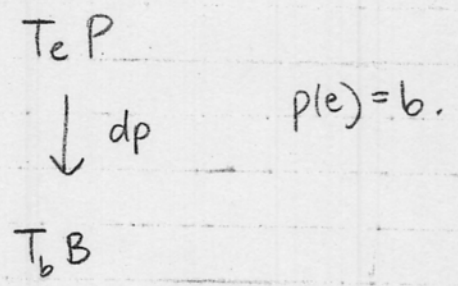 T_e P
↓ dp
p(e) = b.
T_b B